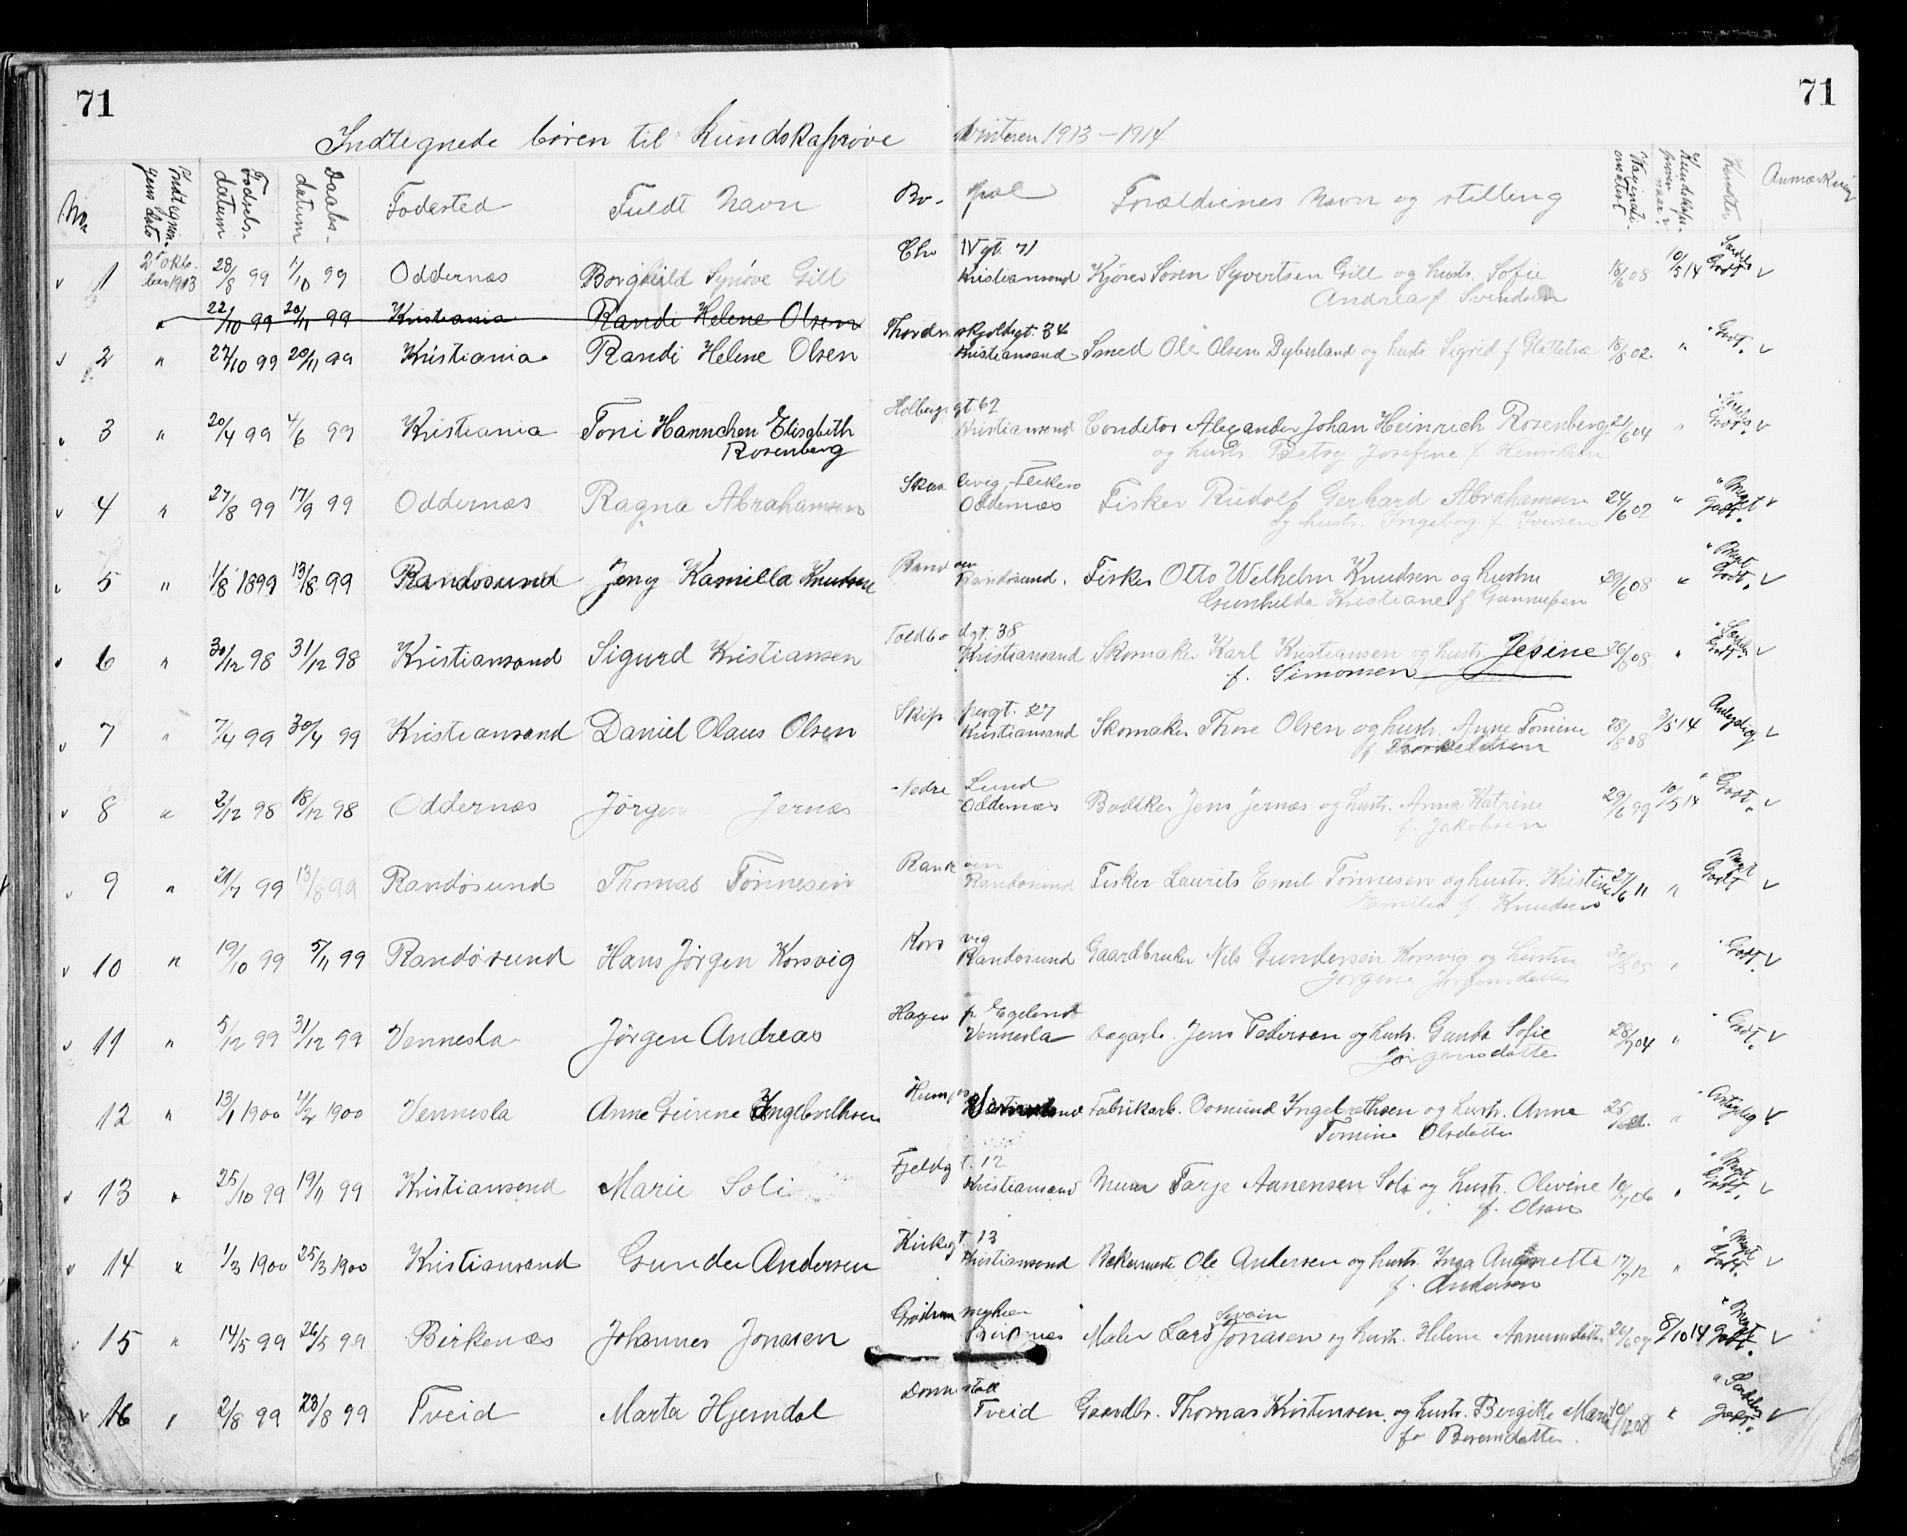 71
71
Indtegnede børen til Kundskapsrøve vinteren 1913-1914
No. Indtegnin-gens dato Fødsels-datum Daabs-datum Fødested Fuldt Navn Bo-pæl Forældrenes Navn og stilling Anmærkning
Chr IV gt. 71
1 2 Okto-ber 1913 28/8 99 1/10 99 Oddernæs Borghild Synøve Gill Kristiansand Kjører Søren Syvertsen Gill og hustr. Sofie 18/6 08 10/5 14 Godt
Andrea f. Svendsen
" 22/10 99 20/11 99 Kristiania Randi Helene Olsen
Thordenskjoldsgt. 34
2 " 22/10 99 20/11 99 Kristiania Randi Helene Olsen Kristiansand Smed Ole Olsen Dybesland og hustr. Sigrid f 18/8 02 " Godt.
Holbergs gt. 67
3 " 20/4 99 4/6 99 Kristiania Toni Hannchen Elisabeth Kristiansand Conditor Alexander Johan Heinrich Rosenberg 21/6 04 " Godt.
Rosenberg og hustr. Betsy Josefine f. Henriksen
Skaalevig, Flekerø
4 " 27/8 99 17/9 99 Oddernæs Ragna Abrahamsen Oddernæs Fisker Rudolf Gerhard Abrahamsen 24/6 02 " Meget godt.
og hustr. Ingeborg f. Iversen
5 " 1/8 1899 13/8 99 Randøsund Jeny Kamilla Knudsen Randøsund. Fisker Otto Welhelm Knudsen og hustru 29/6 08 " Meget Godt.
Gunhilda Kristiane f. Gunnufsen
Toldbodgt. 38
6 " 30/12 98 31/12 98 Kristiansand Sigurd Kristiansen Kristiansand Skomaker Karl Kristiansen og hustr. Jesine 26/8 08 " Godt.
f. Simonsen
Skippergt. 27
7 " 7/4 99 30/4 99 Kristiansand Daniel Olaus Olsen Kristiansand Skomaker Thore Olsen og hustr. Anne Tomine 28/8 08 3/5 14
f Thorkeldsen
Nedre Lund
8 " 2/12 98 18/12 98 Oddernæs Jørgen Jernæs Oddernæs Bødker Jens Jernæs og hustr. Anna Katrine 29/6 99 10/5 14 Godt.
f. Jakobsen
9 " 21/7 99 13/8 99 Randøsund Thomas Tønnesen Randøsund Fisker Laurits Emil Tønnesen og hustr. Kristine 27/6 11 " Meget Godt
Emilie f. Knudsen
Korsvig
10 " 19/10 99 5/11 99 Randøsund Hans Jørgen Korsvig Randøsund Gaardbruker Nils Gundersen Korsvig og hustru " Godt.
Jørgine Jørgensdatter
Hagen p. Egeland
11 " 5/12 99 31/12 99 Vennesla Jørgen Andreas Vennesla Dagarb. Jens Pedersen og hustr. Gunda Sofie 28/7 04 " Godt.
Jørgensdatter
12 " 13/1 1900 4/2 1900 Vennesla Anne Gurine Ingebrethsen Fabrikarb. Osmund Ingebrethsen og hustr. Anne "
Tomine Olsdatter
Fjeldgt. 12
13 " 25/10 99 19/11 99 Kristiansand Marie Soli Kristiansand Murer Tarje Aanensen Soli og hustr. Olivine 10/7 06 " Meget Godt.
f. Olsen
Kirkegt. 13
14 " 1/3 1900 25/3 1900 Kristiansand Gunder Andersen Kristiansand Bakermester Ole Andersen og hustr. Inga 17/7 12 " Meget Godt.
f. Andersen
15 " 14/5 99 26/5 99 Birkenæs Johannes Jonasen Birkenæs Maler Lars Svain Jonasen og hustr. Helene 8/10 14 Meget Godt.
16 " 2/8 99 28/8 99 Tveid Marta Hjemdal Tveid Gaardbr. Thomas Kristensen og hustr. Bergitte Marie " godt.